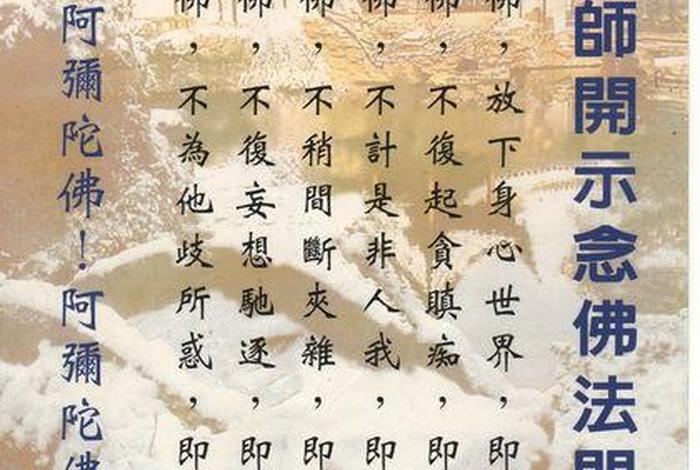 師開示念佛法門
佛，放下身心世界，即
佛，不復起貪瞋痴，即
佛，不計是非人我，即
佛，不稍間斷夾雜，即
佛，不復妄想馳逐，即
佛，不為他歧所惑，即
阿彌陀佛！阿彌陀佛